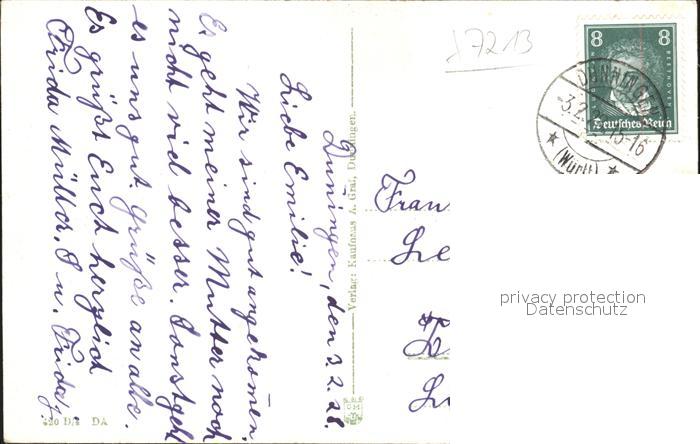 Duningen, den 3. 2. 28.
Liebe Emilie!
Wir sind gut angekommen.
Es geht meiner Mutter noch
nicht viel besser. Sonst geht
es uns gut. Grüße an alle.
Es grüßt Euch herzlich
Frida Müller, S u. Frida j.
Verlag: Kaufhaus A. Graf, Dunningen.
420 D/s DA
17213
8 8
BEETHOVEN
Deutsches Reich
DUNNINGEN
3.2.
15-16
(Württ)
Fran
privacy protection
Datenschutz